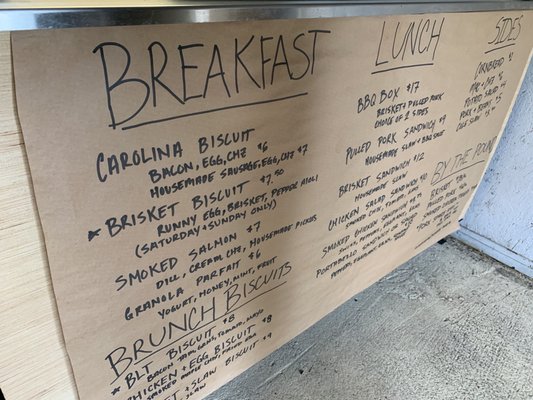 BREAKFAST
CAROLINA BISCUIT
BACON, EGG, CHZ $6
HOUSEMADE SAUSAGE, EGG, CHZ $7
BRISKET BISCUIT $7.50
RUNNY EGG, BRISKET, PEPPER AIOLI
(SATURDAY + SUNDAY ONLY)
SMOKED SALMON $7
DILL, CREAM CHZ, HOUSEMADE PICKLES
GRANOLA PARFAIT $6
YOGURT, HONEY, MINT, FRUIT
BRUNCH BISCUITS
BLT BISCUIT $8
BACON TOMATO, MAYO
CHICKEN + EGG BISCUIT $8
SMOKED FRIED EGG
+ SLAW BISCUIT $9
SLAW
LUNCH
BBQ BOX $17
BRISKET + PULLED PORK
CHOICE OF 2 SIDES
PULLED PORK SANDWICH $9
HOUSEMADE SLAW + BBQ SAUCE
BRISKET SANDWICH $12
HOUSEMADE SLAW
CHICKEN SALAD SANDWICH $10
SMOKED CHKN, TOMATO,
SMOKED CHICKEN SANDWICH
PORTOBELLO SANDWICH
SIDES
CORNBREAD $2
MAC + CHZ $4
POTATO SALAD $4
PORK + BEANS $5
COLE SLAW $3
BY THE POUND
BRISKET
PULLED PORK
SMOKED CHICKEN